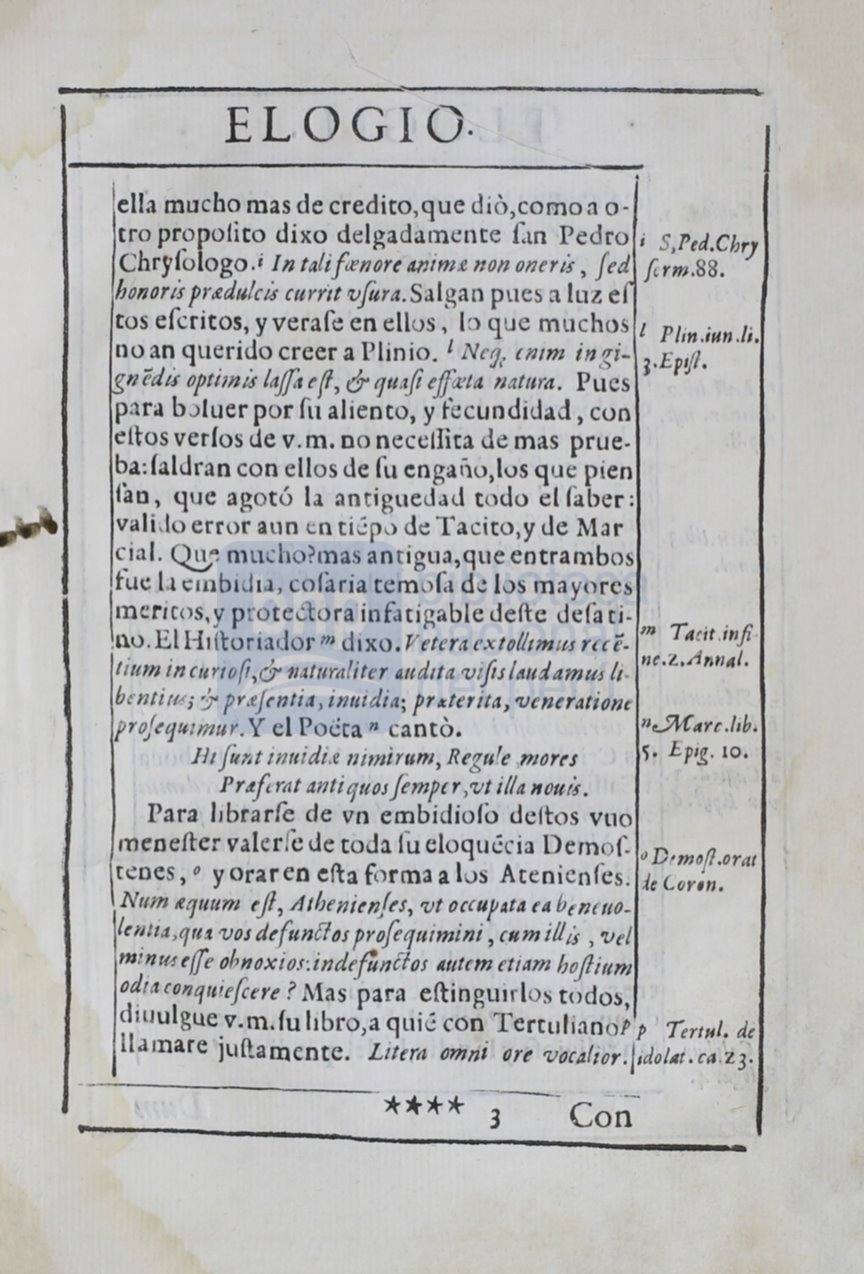 ELOGIO.
ella mucho mas de credito, que diò, como a o-
tro proposito dixo delgadamente ſan Pedro
Chryſologo. i In tali fœnore animæ non oneris, ſed
honoris prædulcis currit vſura. Salgan pues a luz eſ
tos eſcritos, y veraſe en ellos, lo que muchos
no an querido creer a Plinio. l Neq; enim in gi-
gnẽdis optimis laſſa eſt, & quaſi effæta natura. Pues
para boluer por ſu aliento, y fecundidad, con
eſtos verſos de v.m. no neceſſita de mas prue-
ba: ſaldran con ellos de ſu engaño, los que pien
ſan, que agotó la antiguedad todo el ſaber:
valido error aun en tiépo de Tacito, y de Mar
cial. Que mucho? mas antigua, que entrambos
fue la embidia, coſaria temoſa de los mayores
meritos, y protectora infatigable deſte deſati-
no. El Hiſtoriador m dixo. Vetera extollimus recẽ-
tium in curioſi, & naturaliter audita viſis laudamus li-
bentius; & præſentia, inuidia; præterita, veneratione
proſequimur. Y el Poéta n cantò.
Hi ſunt inuidiæ nimirum, Regule mores
Præferat antiquos ſemper, vt illa nouis.
Para librarſe de vn embidioſo deſtos vuo
meneſter valerſe de toda ſu eloquécia Demoſ-
tenes, o y orar en eſta forma a los Atenienſes.
Num æquum eſt, Athenienſes, vt occupata ea beneuo-
lentia, qua vos defunctos proſequimini, cum illis, vel
minus eſſe obnoxios: in defunctos autem etiam hoſtium
odia conquieſcere? Mas para eſtinguirlos todos,
diuulgue v.m. ſu libro, a quié con Tertuliano p
llamare juſtamente. Litera omni ore vocalior.
i S. Ped. Chry
ſerm. 88.
l Plin. iun. li.
3. Epiſt.
m Tacit. infi
ne. 2. Annal.
n Marc. lib.
5. Epig. 10.
o Demoſt. orat
de Coron.
p Tertul. de
idolat. ca. 23.
**** 3 Con